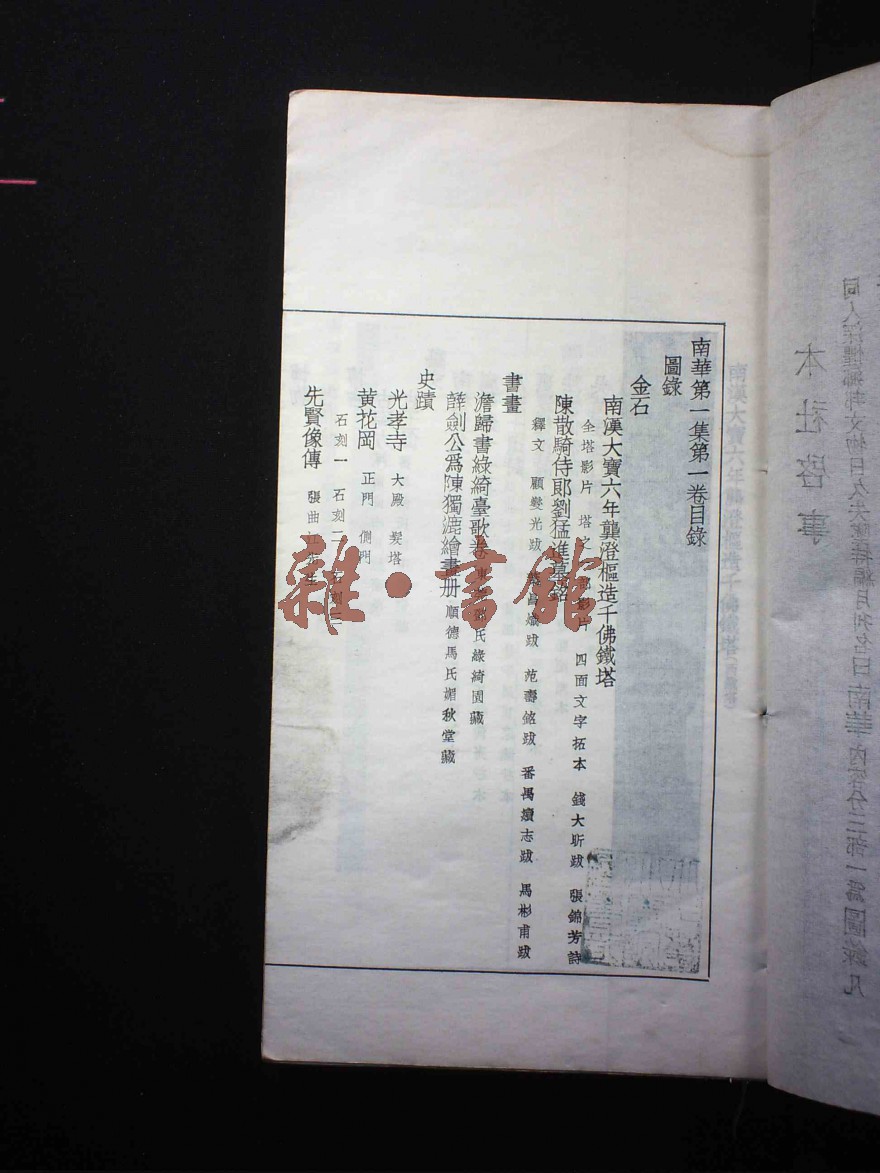 南華第一集第一卷目錄
圖錄
金石
南漢大寶六年龔澄樞造千佛鐵塔
全塔影片 塔之一部影片 四面文字拓本 錢大昕跋 張錦芳詩
陳散騎侍郎劉猛進墓銘
釋文 顧燮光跋 昌熾跋 范壽銘跋 番禺續志跋 馬彬甫跋
書畫
澹歸書綠綺臺歌卷 東 氏綠綺園藏
薛劍公爲陳獨漉繪畫册 順德馬氏媚秋堂藏
史蹟
光孝寺 大殿 髮塔
黃花岡 正門 側門
石刻一 石刻二 石刻三
先賢像傳 張曲江先生
雜·書館
本社啓事